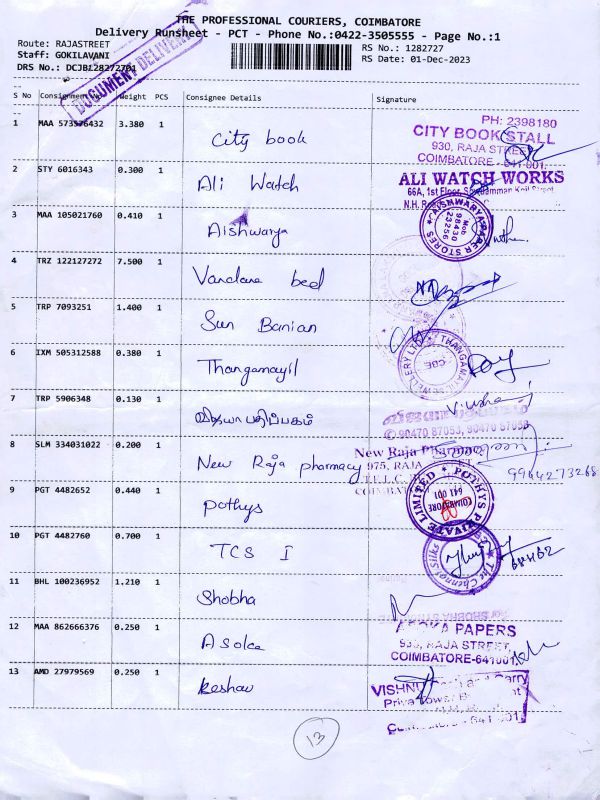 THE PROFESSIONAL COURIERS, COIMBATORE
Delivery Runsheet - PCT - Phone No.:0422-3505555 - Page No.:1
Route: RAJASTREET
Staff: GOKILAVANI
DRS No.: 
RS No.: 1282727
RS Date: 01-Dec-2023
DOCUMENT DELIVERY
S No Consignment Weight PCS Consignee Details Signature
1 MAA 3.380 1 City book
PH: 2398180
CITY BOOK STALL
930, RAJA STREET
COIMBATORE - 641 001.
2 STY 6016343 0.300 1 Ali Watch
ALI WATCH WORKS
66A, 1st Floor,
3 MAA 105021760 0.410 1 Aishwarya
AISHWARYA PAPER STORES
Mob
98430
23256
4 TRZ 122127272 7.500 1 Vandana bed
5 TRP 7093251 1.400 1 Sun Banian
6 IXM 505312588 0.380 1 Thangamayil
CBE
7 TRP 5906348 0.130 1 விஜயா பதிப்பகம்
90470 87053, 90470 87058
8 SLM 334031022 0.200 1 New Raja pharmacy
New Raja Pharmacy
975, RAJA
9944273268
9 PGT 4482652 0.440 1 Pothys
POTHYS PRIVATE LIMITED
COIMBATORE
641 001
10 PGT 4482760 0.700 1 TCS I
The Chennai Silks
11 BHL 100236952 1.210 1 Shobha
12 MAA 862666376 0.250 1 Asoka
PAPERS
RAJA STREET,
COIMBATORE-641001
13 AMD 27979569 0.250 1 Keshav
VISHNU
13